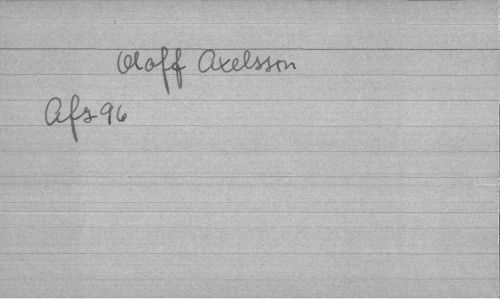 Oloff Axelsson
Afs 96